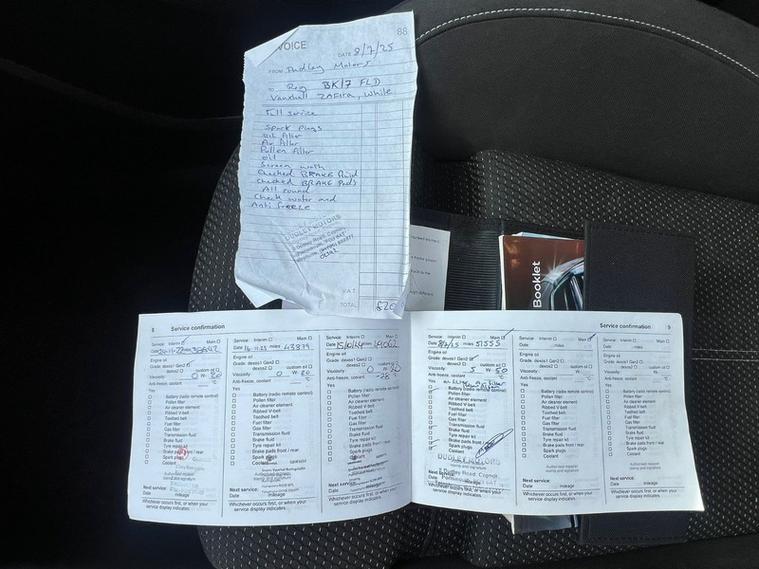 VOICE
88
DATE 8/7/25
FROM Dudley Motors
TO Reg BK17 FLD
Vauxhall ZAFIRA, White
Full service
Spark plugs
oil filter
Air filter
Pollen filter
oil
Screen wash
Checked BRAKE fluid
Checked BRAKE Pads
All round
Check water and
Anti freeze
DUDLEY MOTORS
V.A.T.
TOTAL
Booklet
8 Service confirmation
Service: Interim Main
Date miles
Engine oil
Grade: dexos1 Gen2
dexos2 custom oil
Viscosity 0 W
Anti-freeze, coolant °C
Yes
Battery (radio remote control)
Pollen filter
Air cleaner element
Ribbed V-belt
Toothed belt
Fuel filter
Gas filter
Transmission fluid
Brake fluid
Tyre repair kit
Brake pads front / rear
Spark plugs
Coolant
Authorised repairer
stamp and signature
Next service:
Date mileage
Whichever occurs first, or when your
service display indicates.
Service: Interim Main
Date 14-11-23 miles 43879
Engine oil
Grade: dexos1 Gen2
dexos2 custom oil
Viscosity 0 W 20
Anti-freeze, coolant °C
Yes
Battery (radio remote control)
Pollen filter
Air cleaner element
Ribbed V-belt
Toothed belt
Fuel filter
Gas filter
Transmission fluid
Brake fluid
Tyre repair kit
Brake pads front / rear
Spark plugs
Coolant
Next service:
Date mileage
Whichever occurs first, or when your
service display indicates.
Service: Interim Main
Date 15/10/24 miles
Engine oil
Grade: dexos1 Gen2
dexos2 custom oil
Viscosity 0 W 20
Anti-freeze, coolant °C
Yes
Battery (radio remote control)
Pollen filter
Air cleaner element
Ribbed V-belt
Toothed belt
Fuel filter
Gas filter
Transmission fluid
Brake fluid
Tyre repair kit
Brake pads front / rear
Spark plugs
Coolant
Next service:
Date mileage
Whichever occurs first, or when your
service display indicates.
Service confirmation 9
Service: Interim Main
Date 8/7/25 miles 51555
Engine oil
Grade: dexos1 Gen2
dexos2 custom oil
Viscosity 5 W 30
Anti-freeze, coolant °C
Yes
Battery (radio remote control)
Pollen filter
Air cleaner element
Ribbed V-belt
Toothed belt
Fuel filter
Gas filter
Transmission fluid
Brake fluid
Tyre repair kit
Brake pads front / rear
Spark plugs
Coolant
DUDLEY MOTORS
Date mileage
Whichever occurs first, or when your
service display indicates.
Service: Interim Main
Date miles
Engine oil
Grade: dexos1 Gen2
dexos2 custom oil
Viscosity W
Anti-freeze, coolant °C
Yes
Battery (radio remote control)
Pollen filter
Air cleaner element
Ribbed V-belt
Toothed belt
Fuel filter
Gas filter
Transmission fluid
Brake fluid
Tyre repair kit
Brake pads front / rear
Spark plugs
Coolant
Authorised repairer
stamp and signature
Next service:
Date mileage
Whichever occurs first, or when your
service display indicates.
Service: Interim Main
Date miles
Engine oil
Grade: dexos1 Gen2
dexos2 custom oil
Viscosity W
Anti-freeze, coolant °C
Yes
Battery (radio remote control)
Pollen filter
Air cleaner element
Ribbed V-belt
Toothed belt
Fuel filter
Gas filter
Transmission fluid
Brake fluid
Tyre repair kit
Brake pads front / rear
Spark plugs
Coolant
Authorised repairer
stamp and signature
Next service:
Date mileage
Whichever occurs first, or when your
service display indicates.